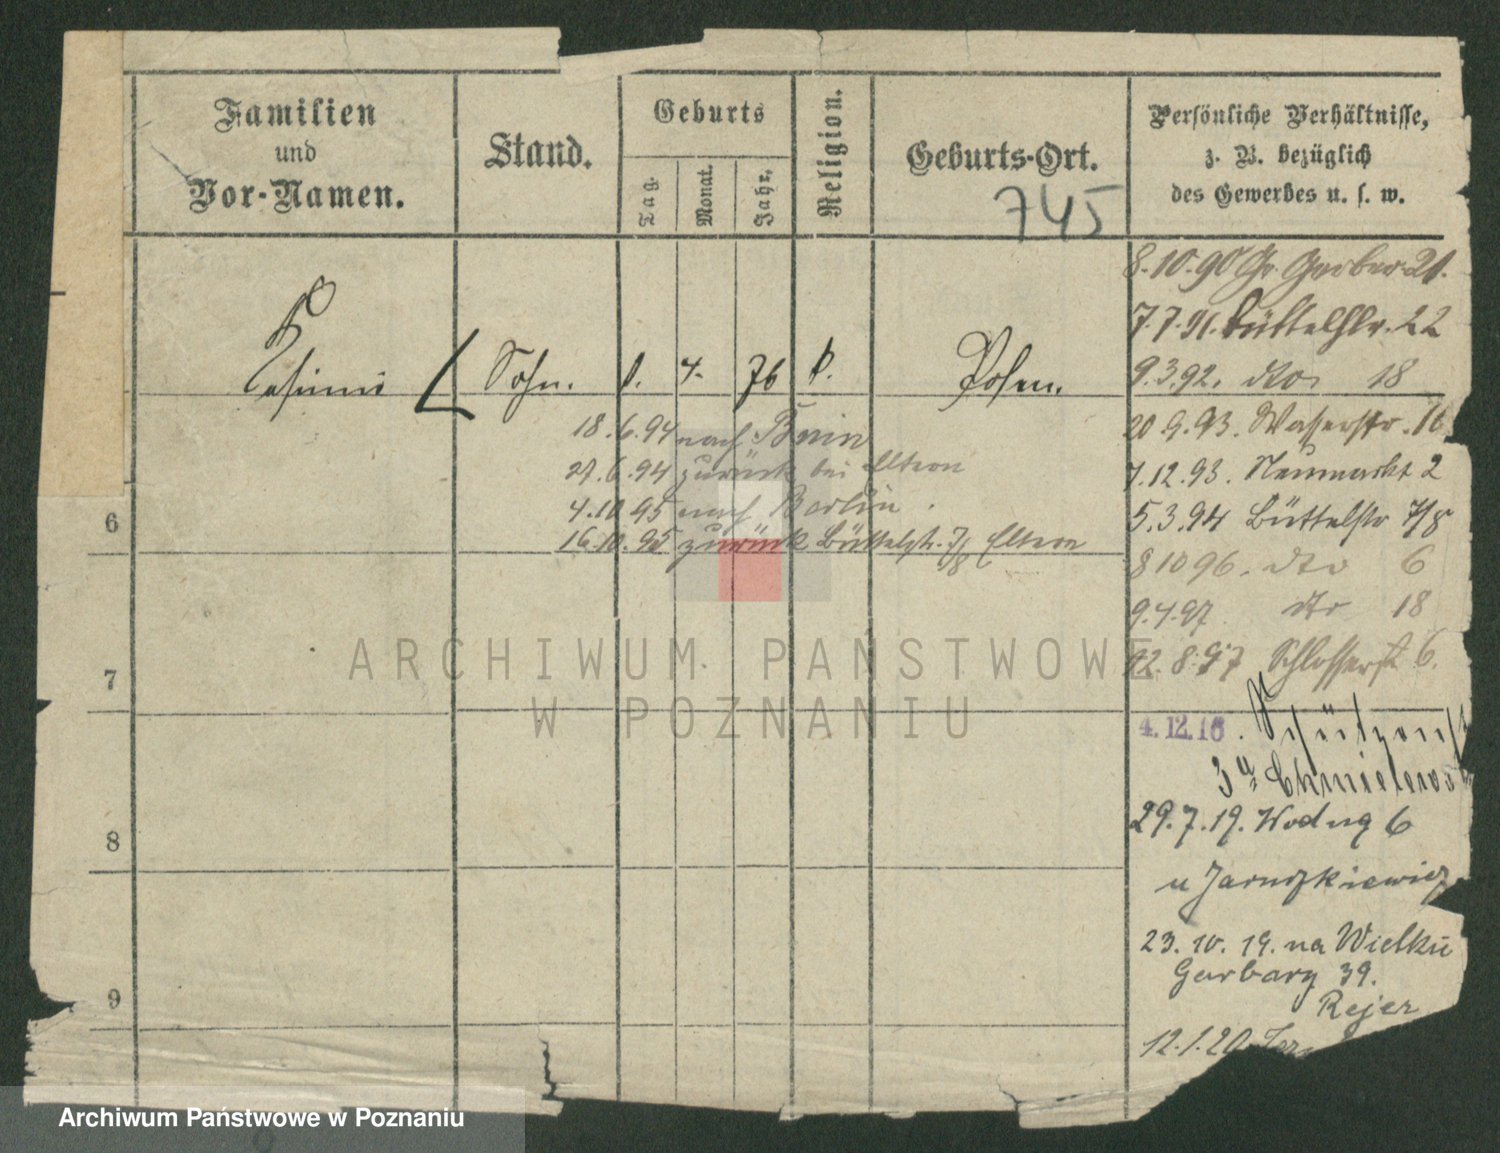 Familien
und
Vor-Namen.
Stand.
Geburts
Tag.
Monat.
Jahr.
Religion.
Geburts-Ort.
745
Persönliche Verhältnisse,
z. B. bezüglich
des Gewerbes u. s. w.
8.10.90 Gr. Gerber 21.
7.7.91. Büttelstr. 22
9.3.92. dto 18
Sohn. 4. 76 Posen.
20.9.93. Wasserstr. 16
18.6.94 nach Bnin
7.12.93. Neumarkt 2
27.6.94 zurück bei Eltern
5.3.94 Büttelstr 7/8
4.10.95 nach Berlin.
6
16.10.95 zurück Büttelstr. 7/8 Eltern
8 10 96. dto 6
9.4.97 dto 18
22.8.97 Schlosserst 6.
7
4.12.16. Schützenst
3a Chmielews
29.7.19. Wodng 6
8
u Jaruszkiewicz
23.10.19. na Wielkie
Garbary 39.
9
Rejer
12.1.20
ARCHIWUM PAŃSTWOWE
W POZNANIU
Archiwum Państwowe w Poznaniu